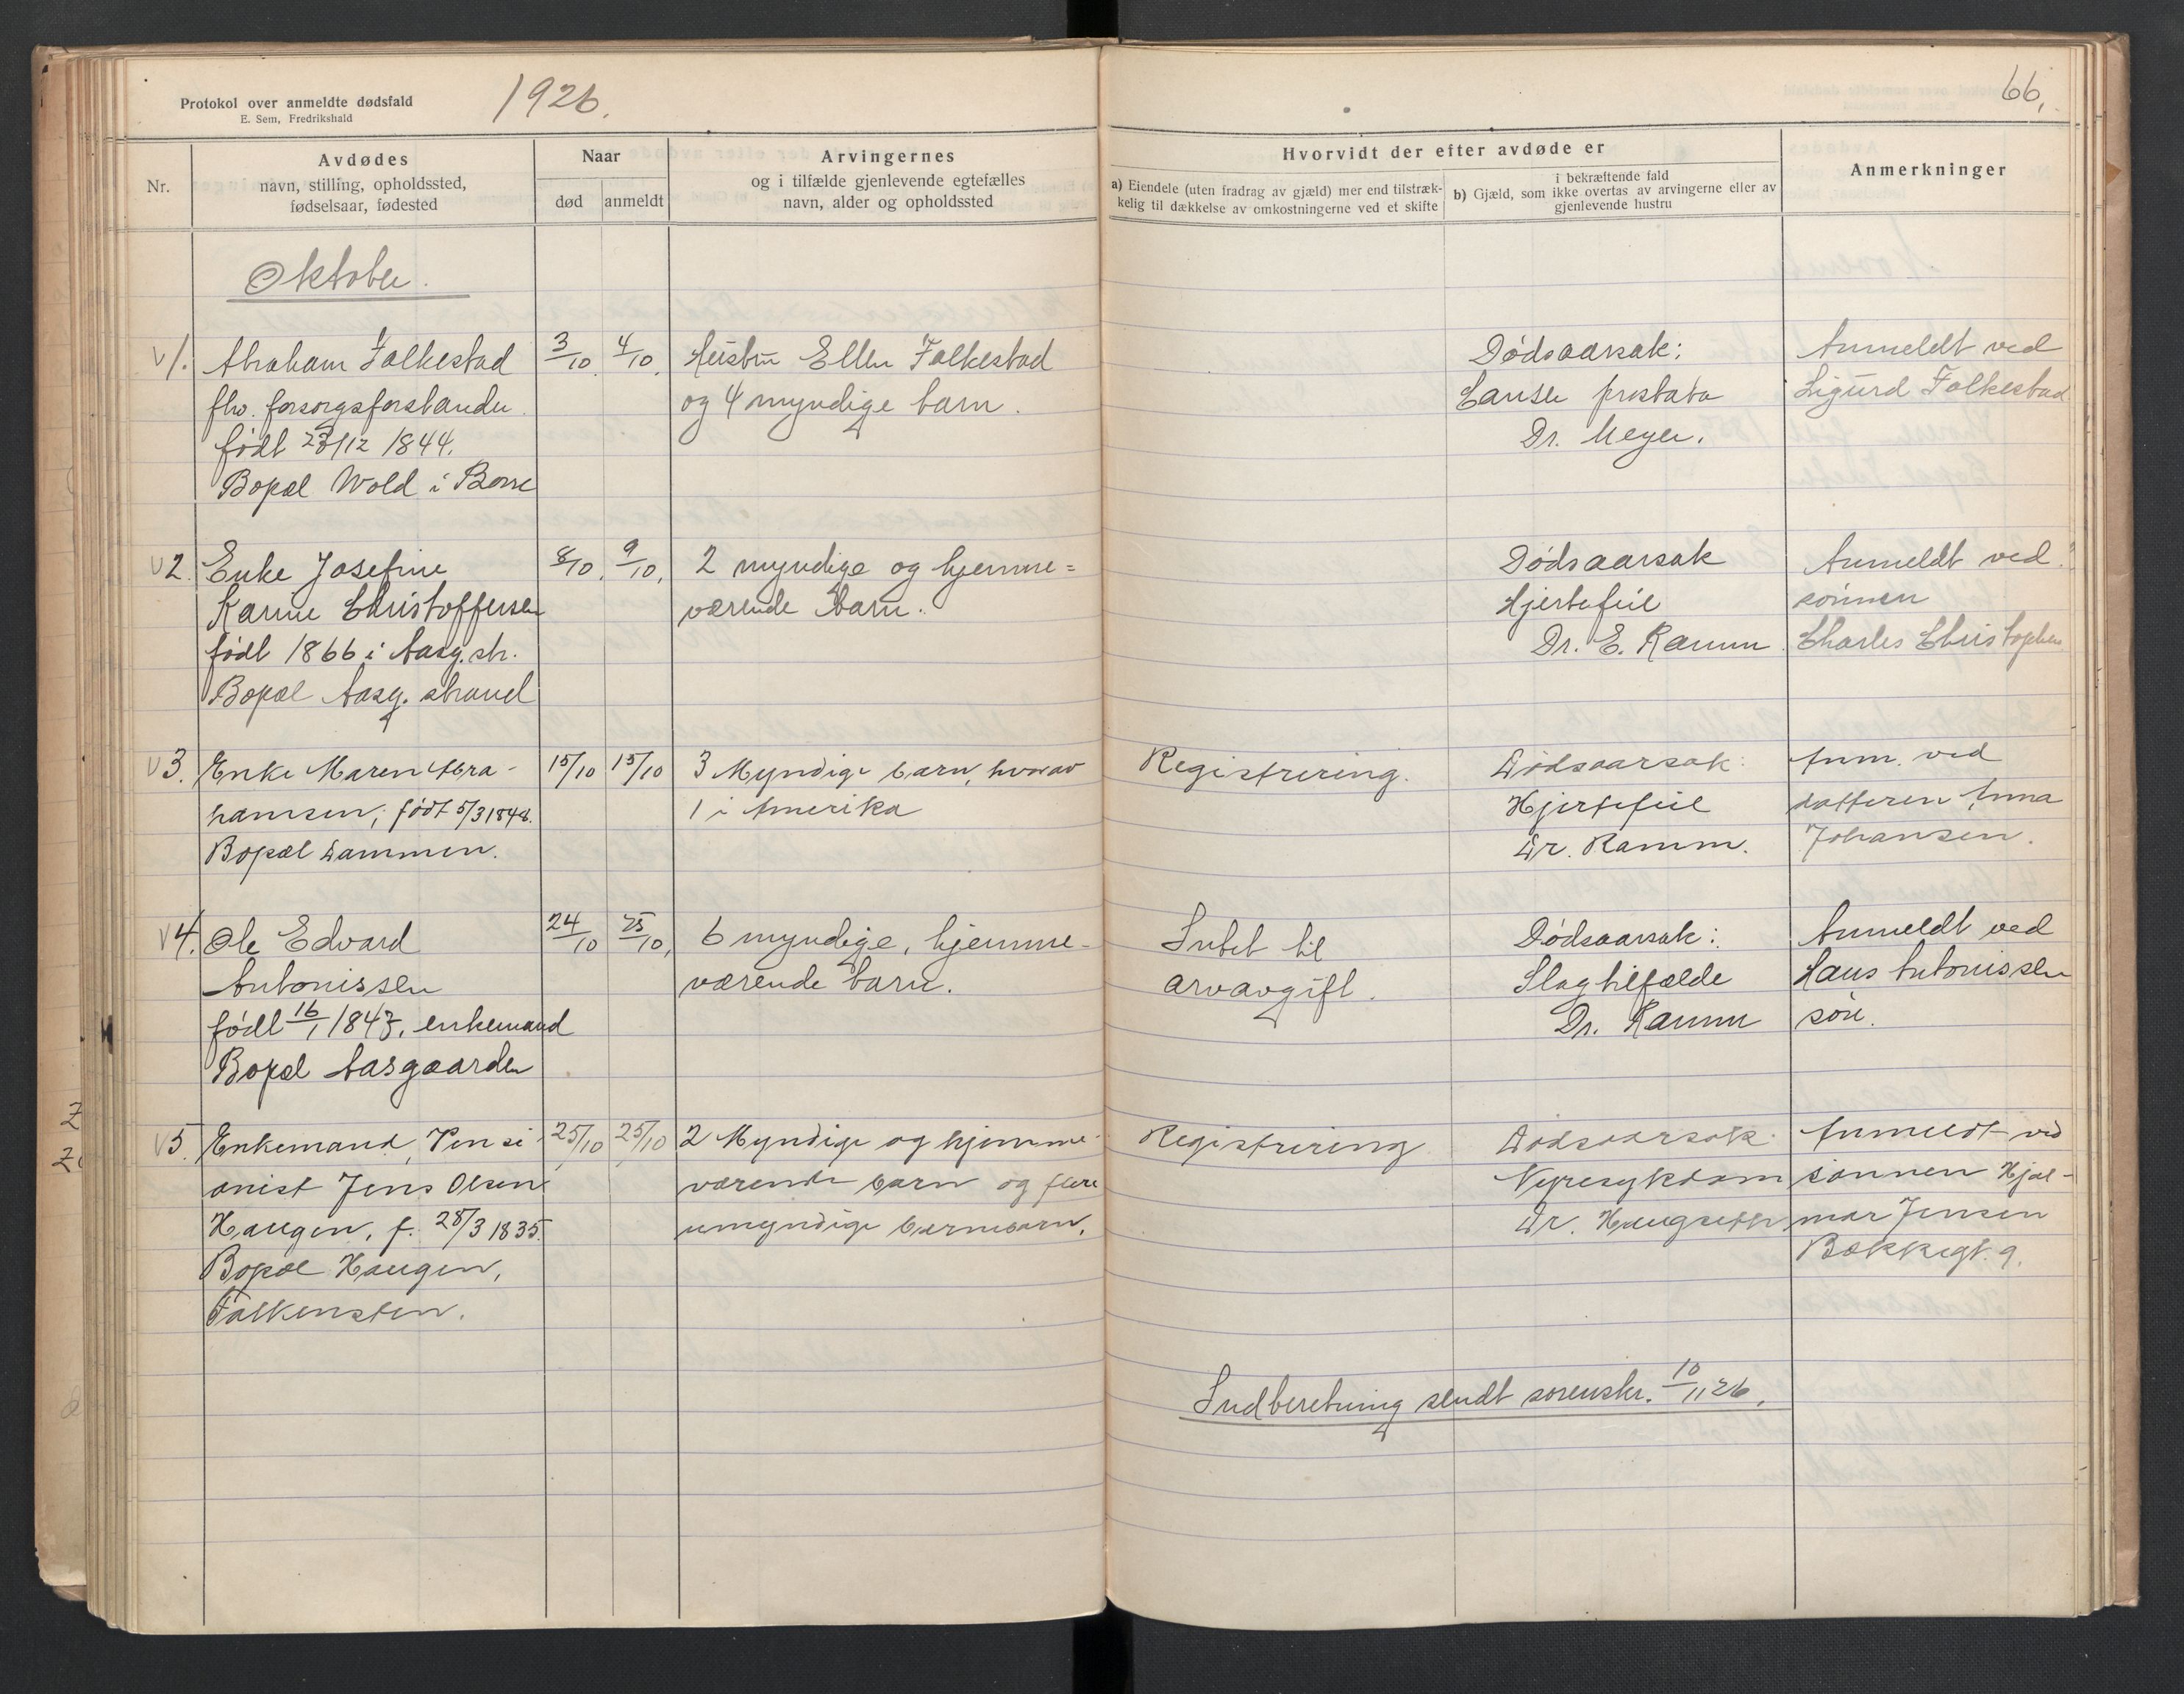 Protokol over anmeldte dødsfald
E. Sem, Fredrikshald
1926.
66.
Nr.
Avdødes
navn, stilling, opholdssted,
fødselsaar, fødested
Naar
død
anmeldt
Arvingernes
og i tilfælde gjenlevende egtefælles
navn, alder og opholdssted
Hvorvidt der efter avdøde er
a) Eiendele (uten fradrag av gjæld) mer end tilstræk-
kelig til dækkelse av omkostningerne ved et skifte
i bekræftende fald
b) Gjæld, som ikke overtas av arvingerne eller av
gjenlevende hustru
Anmerkninger
Oktober.
v 1. Abraham Falkestad
fhv. forsorgsforstander
født 23/12 1844.
Bopæl Wold i Borre
3/10.
4/10.
Hustru Ellen Falkestad
og 4 myndige barn.
Dødsaarsak:
Cancer prostata
Dr. Meyer.
Anmeldt ved
Sigurd Falkestad
v 2. Enke Josefine
Karine Christoffersen
født 1866 i Aasg.str.
Bopæl Aasg. strand
8/10.
9/10.
2 myndige og hjemme=
værende barn.
Dødsaarsak
Hjertefeil
Dr. E. Ramm
Anmeldt ved
sønnen
Charles Christophers
v 3. Enke Maren Abra-
hamsen, født 5/3 1848.
Bopæl Dammen.
15/10
15/10
3 Myndige barn, hvorav
1 i Amerika
Registrering.
Dødsaarsak:
Hjertefeil
Dr. Ramm.
Anm. ved
datteren Anna
Johansen.
v 4. Ole Edvard
Antonissen
født 16/1 1843, enkemand
Bopæl Aasgaarden
24/10
25/10.
6 myndige, hjemme-
værende barn.
Intet til
arvavgift.
Dødsaarsak:
Slagtilfælde
Dr. Ramm
Anmeldt ved
Hans Antonissen
søn.
v 5. Enkemand, Pensi-
onist Jens Olsen
Haugen, f. 28/3 1835.
Bopæl Haugen,
Falkensten.
25/10
25/10
2 Myndige og hjemme-
værende barn og flere
umyndige barnebarn.
Registrering
Dødsaarsak:
Nyresykdom
Dr. Haugseth
Anmeldt ved
sønnen Hjal-
mar Jensen
Bakkegt. 9.
Indberetning sendt sorenskr. 10/11 26.